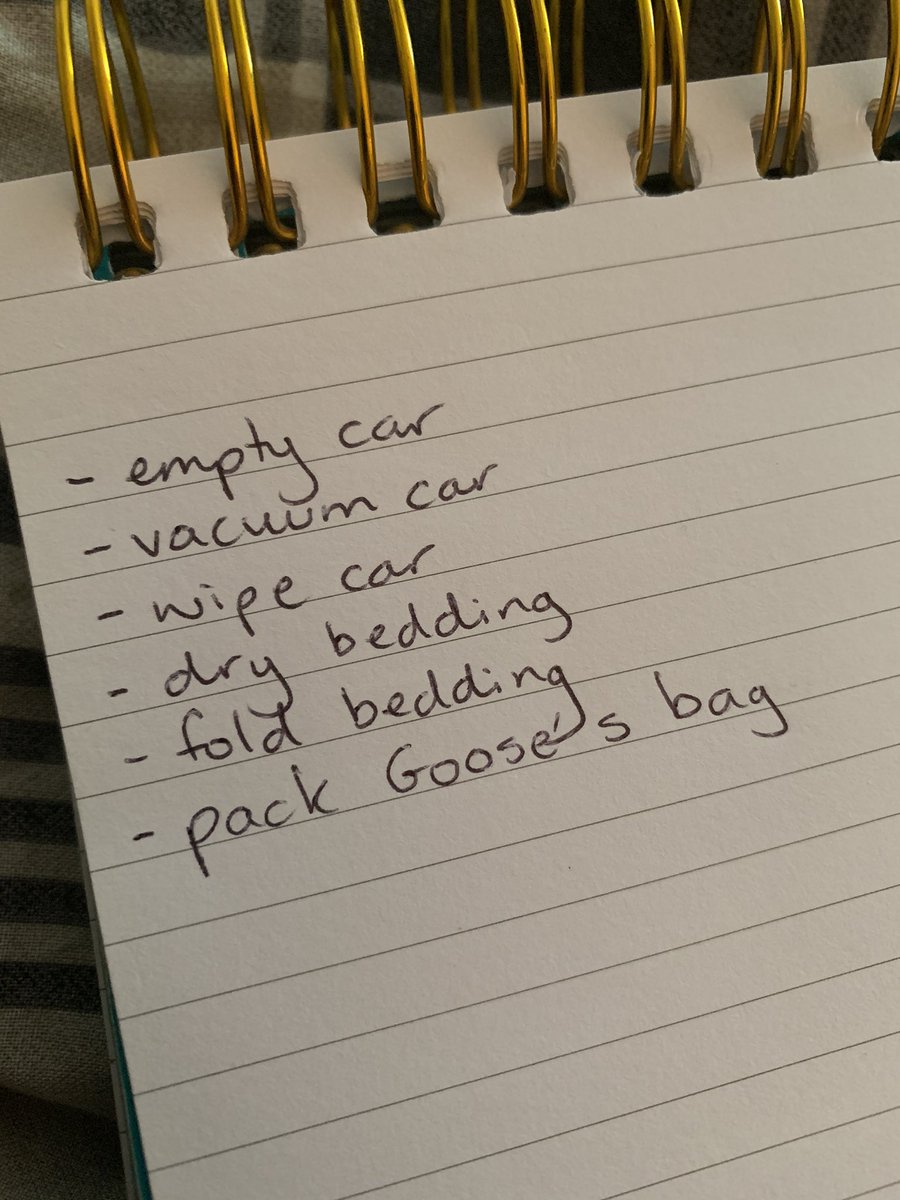 - empty car
- vacuum car
- wipe car
- dry bedding
- fold bedding
- pack Goose's bag